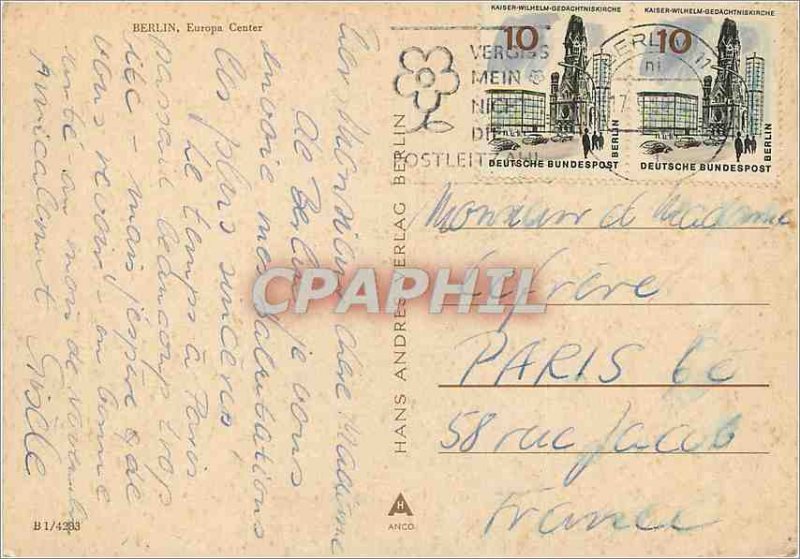 BERLIN, Europa Center
KAISER-WILHELM-GEDÄCHTNISKIRCHE
KAISER-WILHELM-GEDÄCHTNISKIRCHE
10
10
BERLIN
BERLIN
DEUTSCHE BUNDESPOST
DEUTSCHE BUNDESPOST
BERLIN 11
VERGISS
MEIN
NICHT
DIE
POSTLEITZAHL
17
Cher Monsieur, chère Madame
de Berlin je vous
envoie mes salutations
les plus sincères.
Le temps à Paris
passait beaucoup trop
vite - mais j'espère de
vous revoir en bonne
santé au mois de
Amicalement
Gisèle
HANS ANDRES VERLAG BERLIN
Monsieur et Madame
Lefrère
PARIS 6e
58 rue Jacob
France
B 1/4293
H
ANCO
CPAPHIL